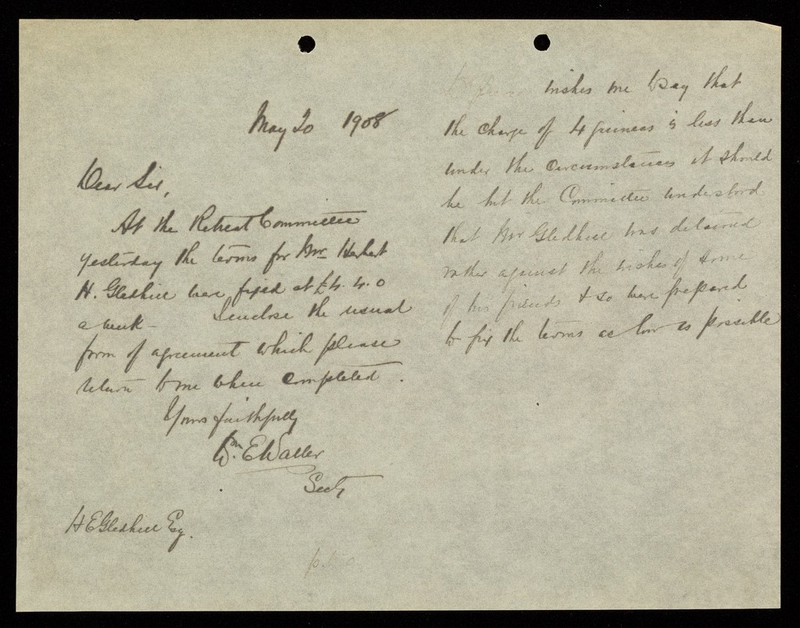 May 20 1908
Dear Sir,
At the Retreat Committee
yesterday the terms for Mr Herbert
H. Gledhill were fixed at £4. 4. 0
a week - I enclose the usual
form of agreement which please
return to me when completed.
Yours faithfully
Wm. E Waller
Secty
H E Gledhill Esq.
p.t.o
wishes me to say that
the charge of 4 guineas is less than
under the circumstances it should
be but the Committee understood
that Mr Gledhill was detained
rather against the wishes of some
of his friends & so were prepared
to fix the terms as low as possible